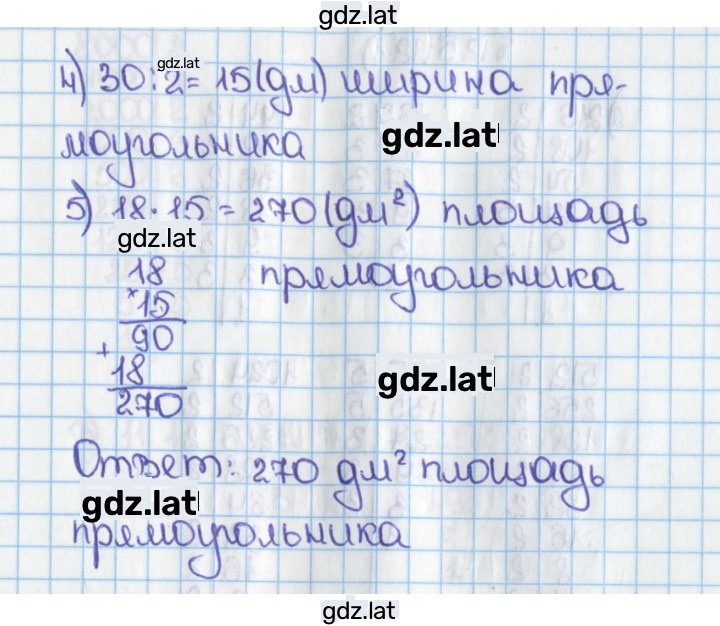 gdz.lat
gdz.lat
4) 30:2= 15(дм) ширина пря-
gdz.lat
моугольника
5) 18·15 = 270(дм²) площадь
gdz.lat
18 прямоугольника
×15
90
+
18
gdz.lat
270
Ответ: 270 дм² площадь
gdz.lat
прямоугольника
gdz.lat